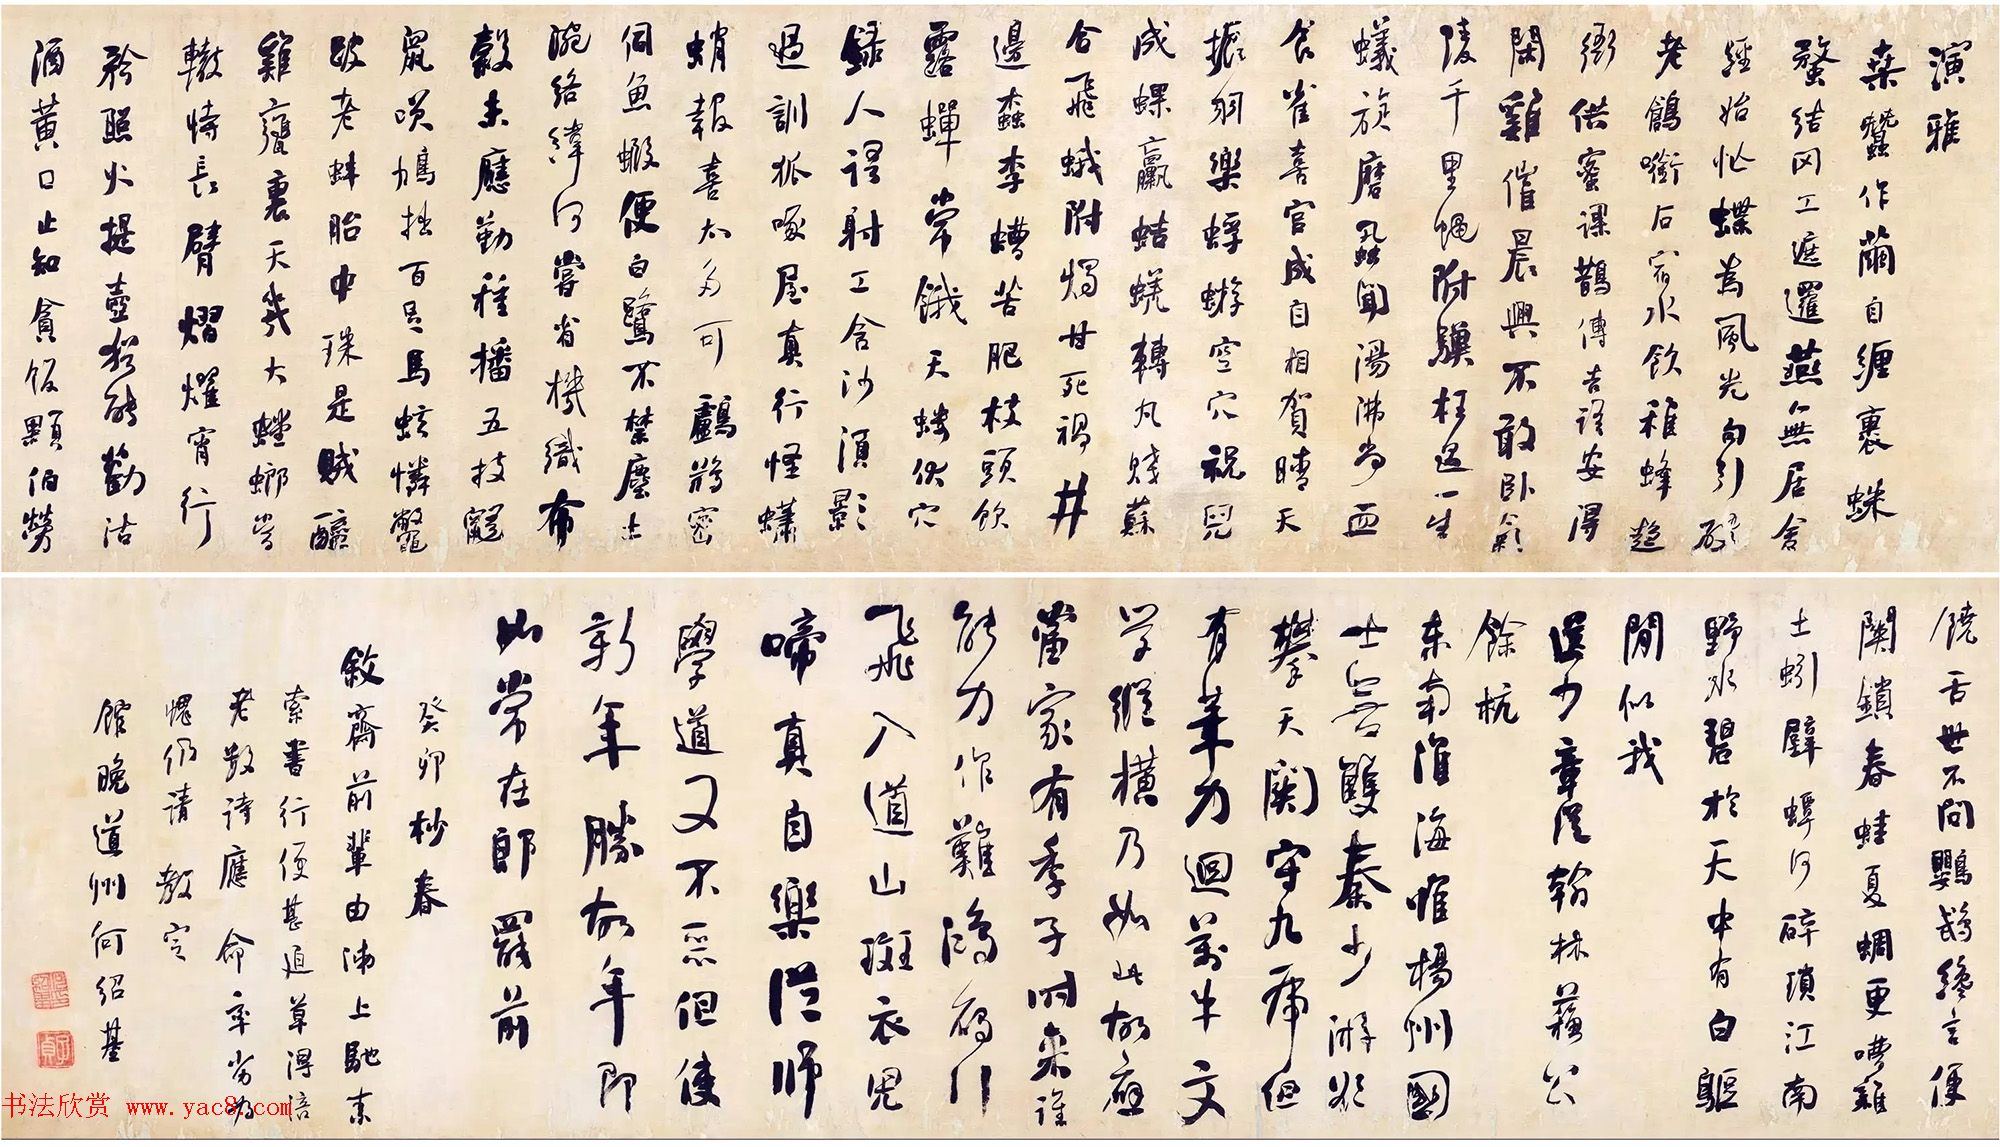 演雅
桑蠶作繭自纏裹蛛
蝥結网工遮邏燕無居舍
經始忙蝶為風光勾引破
老鶬銜石宿水飲稚蜂趨
衙供蜜課鵲傳吉語安得
閑雞催晨興不敢臥氣
陵千里蠅附驥枉過一生
蟻旋磨虱聞湯沸尚血
食雀喜宮成自相賀晴天
振羽樂蜉蝣空穴祝兒
成蜾蠃蛣蜣轉丸賤蘇
合飛蛾附燭甘死禍井
邊蠹李螬苦肥枝頭飲
露蟬常餓天螻伏穴
錄人語射工含沙須影
過訓狐啄屋真行怪蠨
蛸報喜太多可鸕鶿密
伺魚蝦便白鷺不禁塵土
涴絡緯何嘗省機織布
穀未應勤種播五技鼯
鼠笑鳩拙百足馬蚿憐鱉
跛老蚌胎中珠是賊醯
雞甕裏天幾大螳螂當
轍恃長臂熠燿宵行
矜照火提壺猶能勸沽
酒黃口止知貪飯顆伯勞
饒舌世不問鸚鵡纔言便
關鎖春蛙夏蜩更嘈雜
土蚓壁蟫何碎瑣江南
野水碧於天中有白鷗
閒似我
送少章從翰林蘇公
餘杭
東南淮海唯楊州國
士無雙秦少游欲
攀天關守九虎但
有筆力迴萬牛文
学縱橫乃如此故應
當家有季子時來誰
能力作難鴻雁行
飛入道山斑衣兒
啼真自樂從師
學道又不惡但使
新年勝故年即
如常在郎罷前
癸卯杪春
敘齋前輩由沛上馳柬
索書行便甚迫草得涪
老數詩應命率劣為
愧仍請教定
館晚道州何紹基
子貞
书法欣赏 www.yac8.com